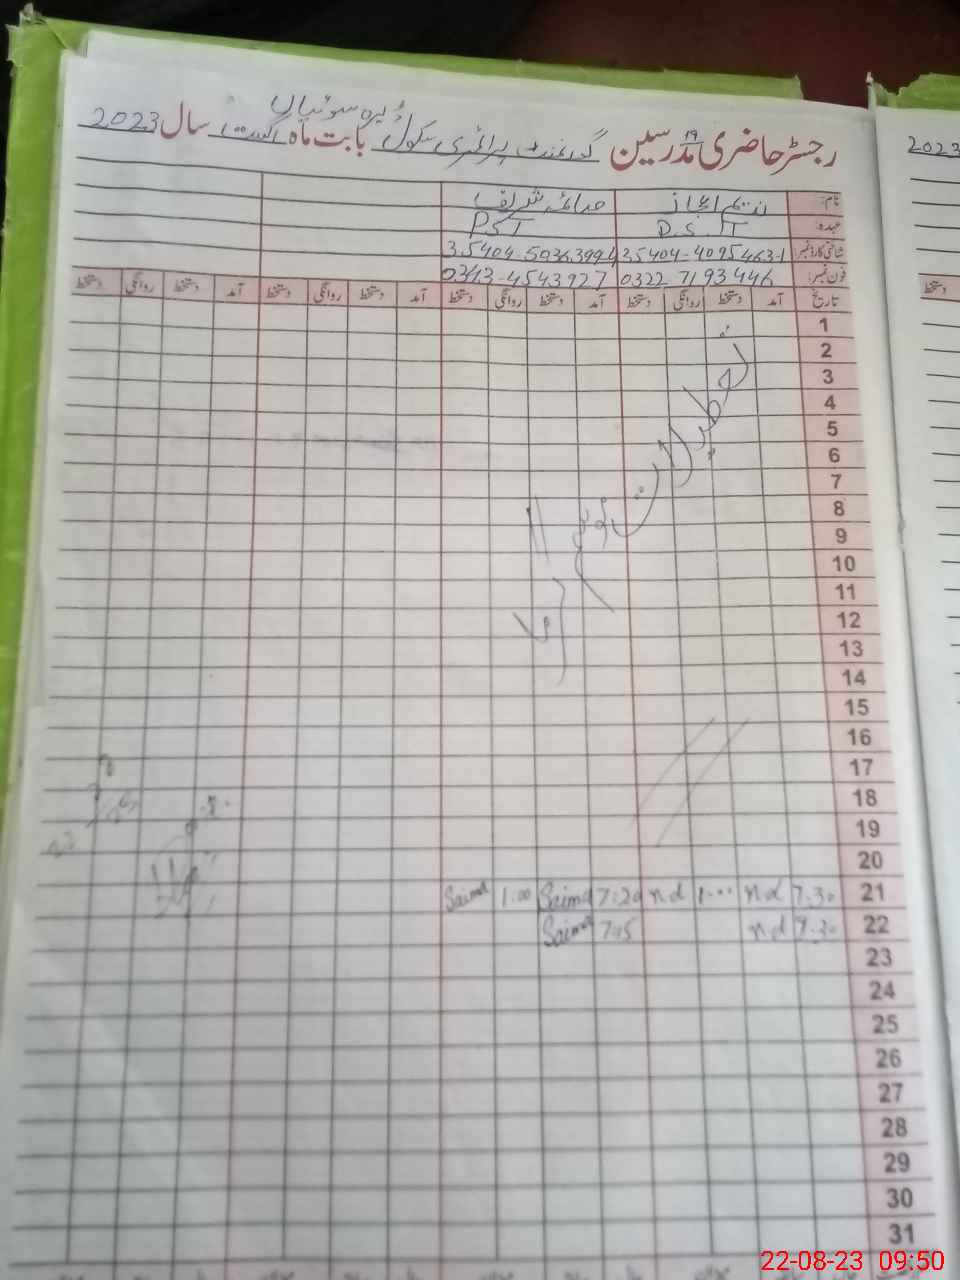 رجسٹر حاضری مدرسین گورنمنٹ پرائمری سکول ڈیرہ سوئیاں بابت ماہ اگست سال 2023
19
2023
نام: ندیم اعجاز صائمہ شریف
عہدہ: PST
شناختی کارڈ نمبر: 35404-4095463-1
فون نمبر: 0322 7193446 0343-4543927
تاریخ آمد دستخط روانگی دستخط آمد دستخط روانگی دستخط آمد دستخط روانگی دستخط آمد دستخط روانگی دستخط
دستخط
1
2
3
4
5
6
7
8
9
10
11
12
13
14
15
16
17
18
19
20
21 7.30 nd 1.00 nd 7:20 Saima 1:00 Saima
22 7.30 nd 7:15 Saima
23
24
25
26
27
28
29
30
31
تعطیلات موسم گرما
22-08-23 09:50